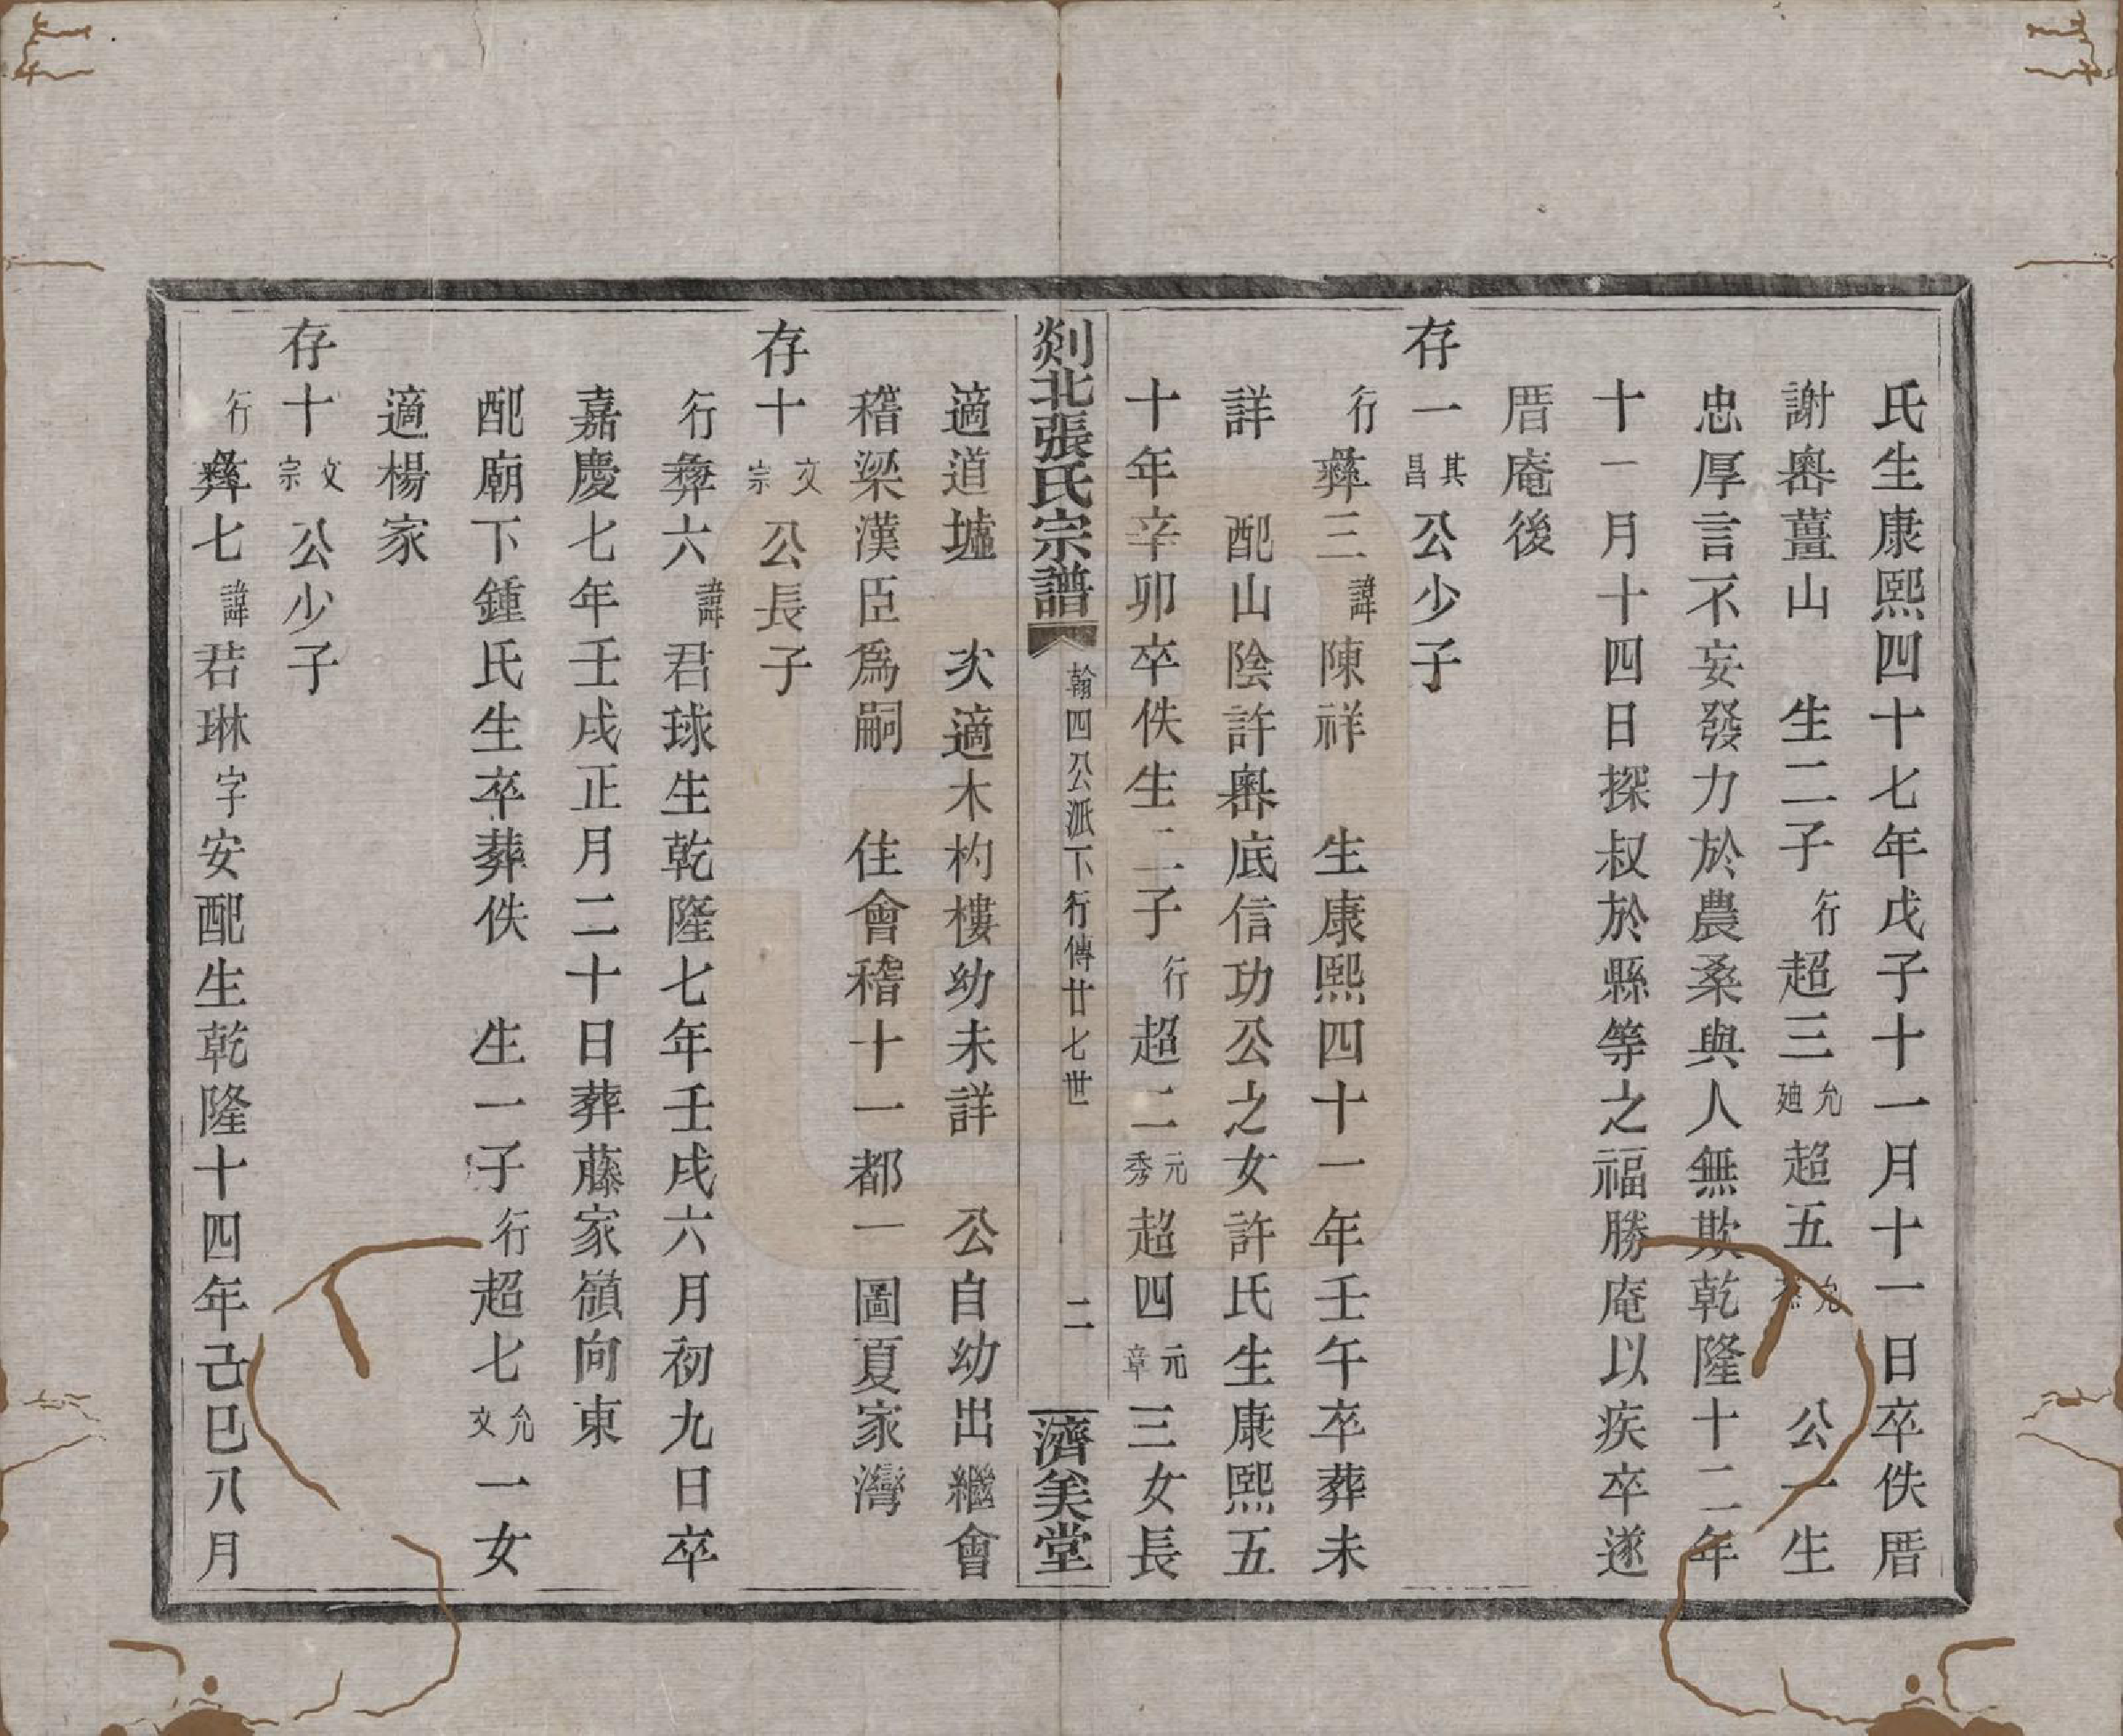 氏生康熙四十七年戊子十一月十一日卒佚厝
謝嶴薑山　生二子行超三允廸超五允　公一生
忠厚言不妄發力於農桑與人無欺乾隆十二年
十一月十四日探叔於縣等之福勝庵以疾卒遂
厝庵後
存一其昌公少子
行彝三諱陳祥　生康熙四十一年壬午卒葬未
詳　配山陰許嶴底信功公之女許氏生康熙五
十年辛卯卒佚生二子行超二元秀超四元章三女長
剡北張氏宗譜　翰四公派下行傳廿七世　二　濟美堂
適道墟　次適木杓樓幼未詳　公自幼出繼會
稽梁漢臣爲嗣　住會稽十一都一圖夏家灣
存十文宗公長子
行彝六諱君球生乾隆七年壬戌六月初九日卒
嘉慶七年壬戌正月二十日葬藤家嶺向東
配廟下鍾氏生卒葬佚　生一子行超七允文一女
適楊家
存十文宗公少子
行彝七諱君琳字安配生乾隆十四年己巳八月